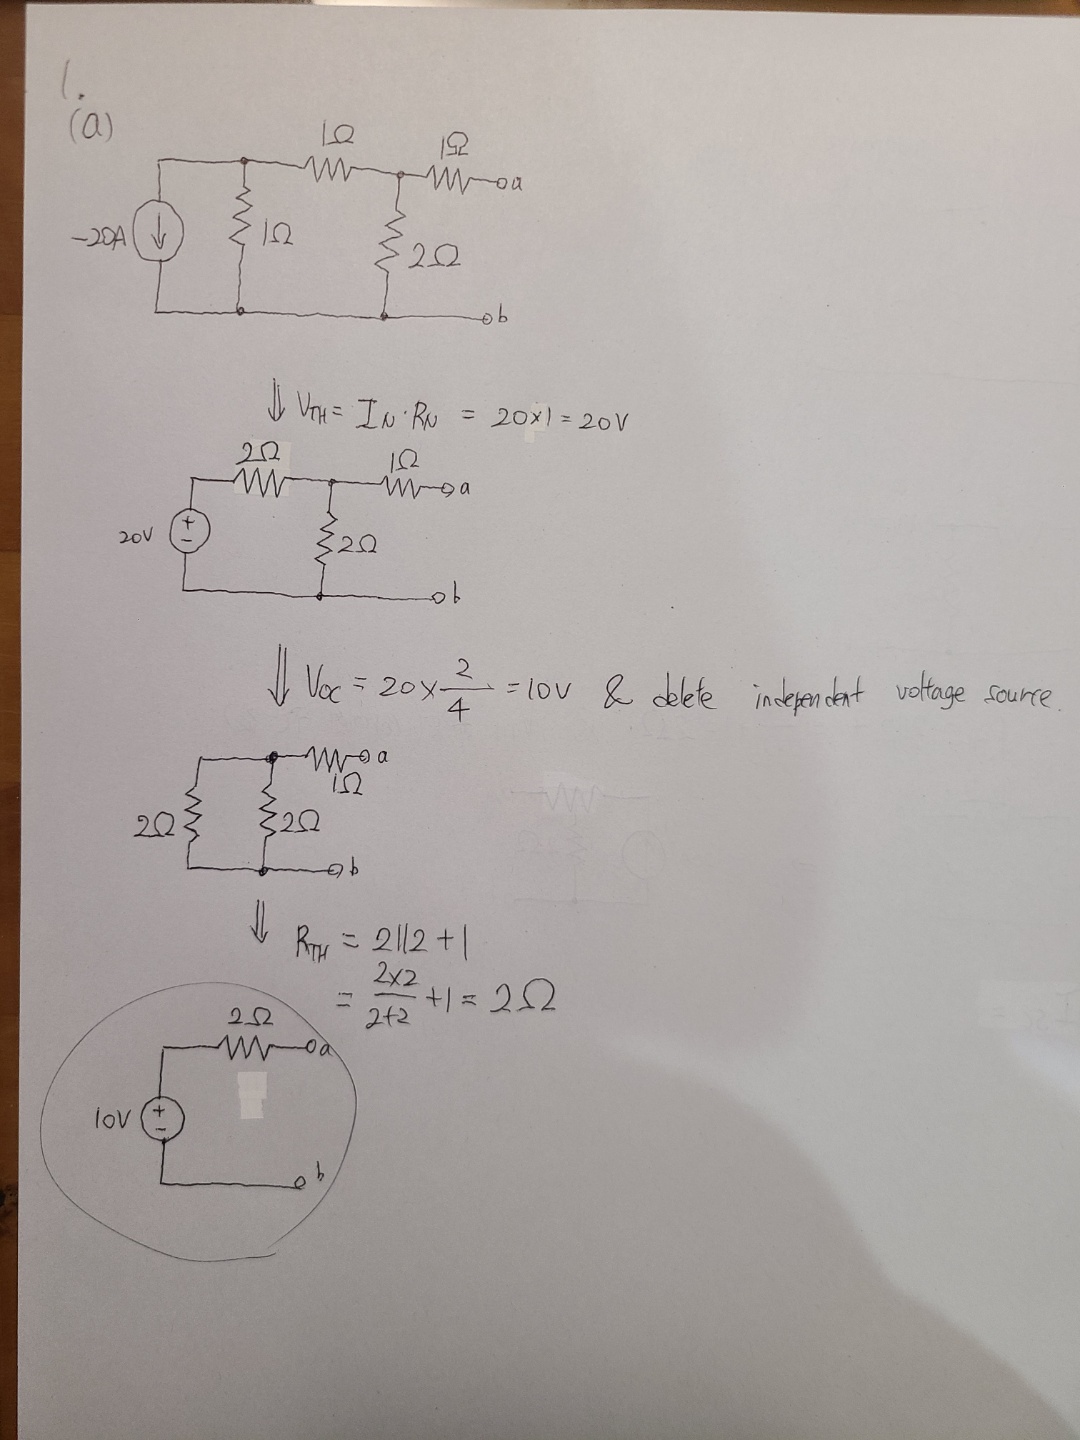 1.
(a)
1Ω 1Ω
a
-20A 1Ω 2Ω
b
⇓ VTH = IN·RN = 20×1 = 20V
2Ω 1Ω
a
20V + - 2Ω
b
⇓ Voc = 20× 2/4 = 10V & delete independent voltage source.
a
1Ω
2Ω 2Ω
b
⇓ RTH = 2||2 + 1
= 2×2/2+2 + 1 = 2Ω
2Ω
a
10V + -
b